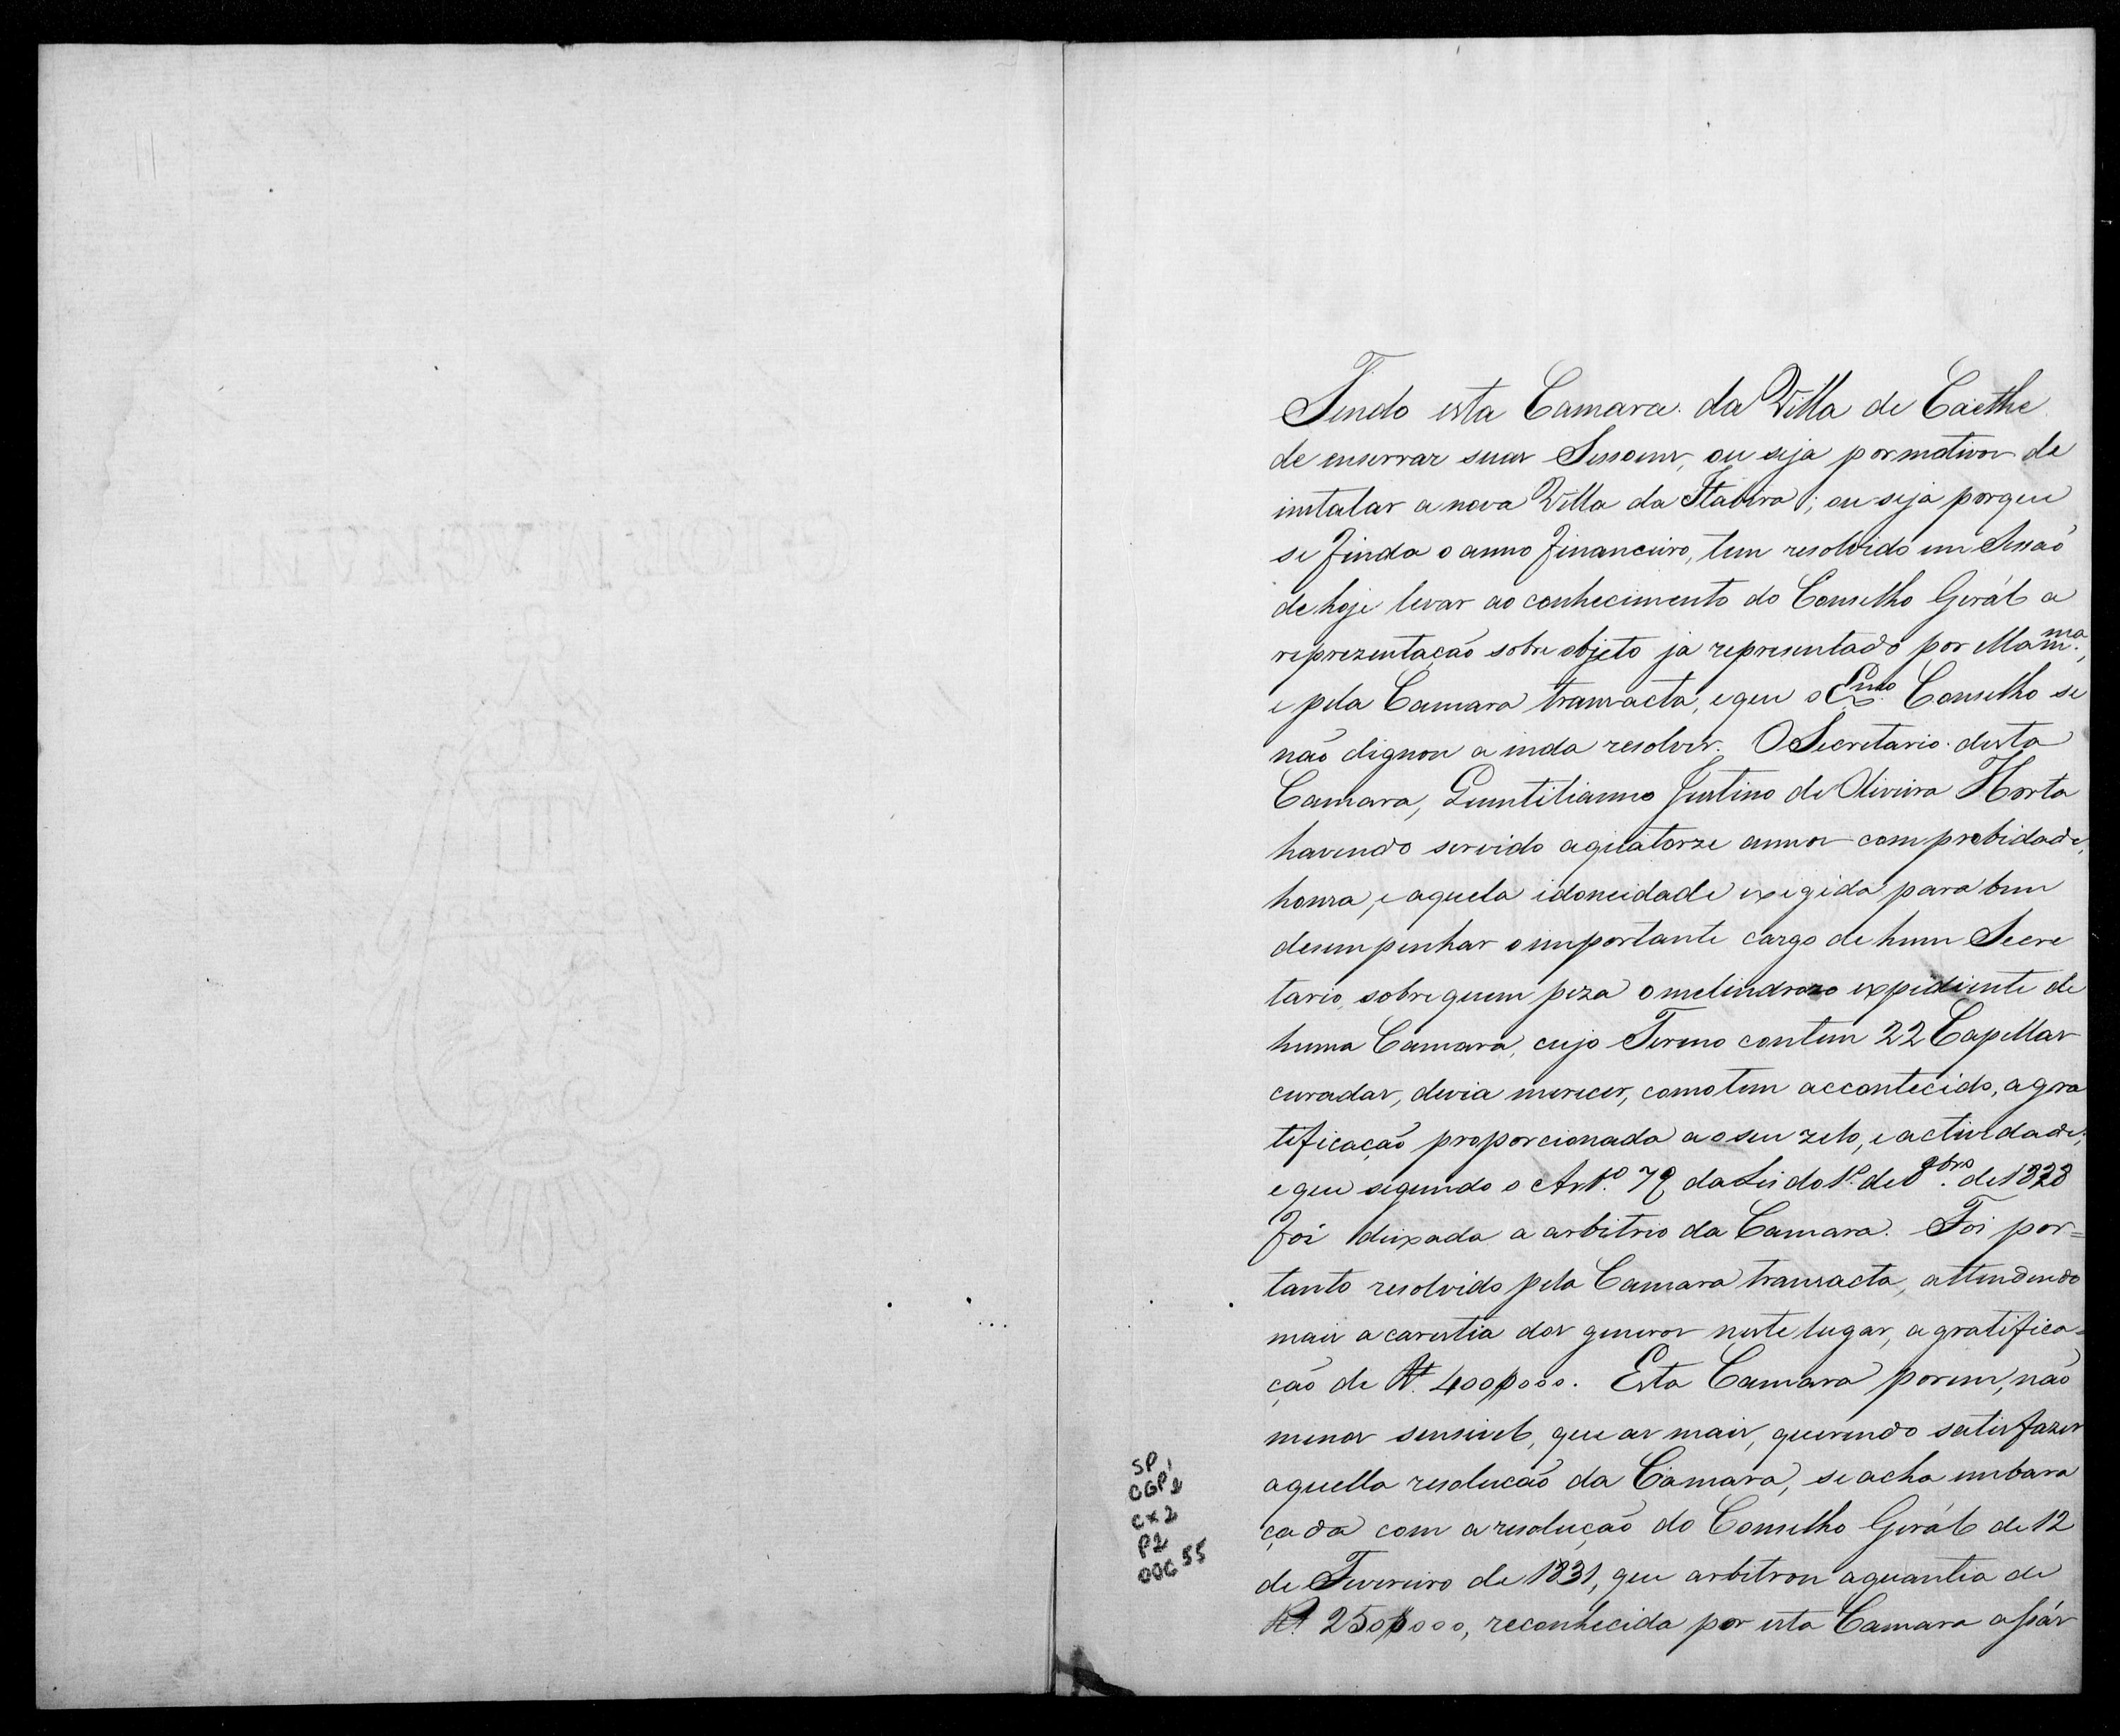 Tendo esta Camara da Villa de Caethe
de enserrar suas Sessoens, ou seja por motivos de
instalar a nova Villa da Itabira; ou seja porque
se finda o anno financeiro, tem resolvido em Sessaõ
de hoje levar ao conhecimento do Conselho Gerál a
reprezentaçaõ sobre objeto ja representado por
e pela Camara transacta, e que o Exmo. Conselho se
naõ dignou a inda resolver. O Secretario desta
Camara, Quintilianno Justino de Oliveira Horta
havendo servido a quatorze annos com probidade,
honra, e aquela idoneidade exigida para bem
desempenhar o importante cargo de hum Secre
tario, sobre quem peza o melindrozo expediente de
huma Camara, cujo Termo contem 22 Capellas
curadas, devia merecer, como tem accontecido, a gra
tificaçaõ proporcionada ao seu zelo, e actividade;
e que segundo o Arto. 79 da Lei do 1º. de 8bro. de 1828
foi deixada a arbitrio da Camara. Foi por=
tanto resolvido pela Camara transacta, attendendo
mais a carestia dos generos neste lugar, a gratifica=
çaõ de R. 400$000. Esta Camara porem, naõ
menos sensivel, que as mais, querendo satisfazer
aquella resoluçaõ da Camara, se acha embara
çada com a resoluçaõ do Conselho Gerál de 12
de Fevereiro de 1831, que arbitrou a quantia de
R. 250$000, reconhecida por esta Camara assás
SP
CGP1
CX2
P2
DOC 55